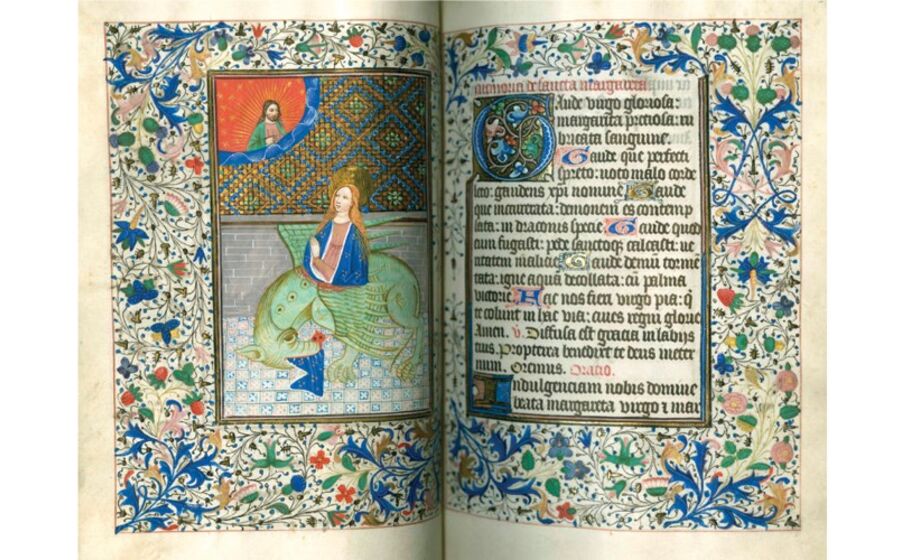 Memoria de sancta margareta
Gaude virgo gloriosa:
margarita preciosa: ru
bricata sanguine.
Gaude que perfecti
spreto: noto malo corde
leto: gaudens xpi nomine Gaude
que incarcerata: demonem es contemp
lata: in draconis specie Gaude quod
cum fugasti: pede sanctoque calcasti: ve
malicie Gaude demum torme
tata: igne aqua decollata: cu palma
victorie Hac nos fieri virgo pia: q
te colunt in hac via: cives regni glorie
Amen. v. Diffusa est gracia in labijs
tuis. Propterea benedixit te deus in eter
num. Oremus. Oracio.
Indulgenciam nobis domine
beata margareta virgo i mar